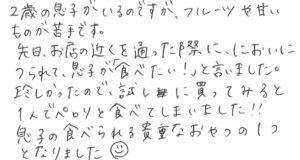 2歳の息子がいるのですが、フルーツや甘い
ものが苦手です。
先日、お店の近くを通った際に、においに
つられて、息子が「食べたい!」と言いました。
珍しかったので、試しに買ってみると
1人でペロリと食べてしまいました!!
息子の食べられる貴重なおやつの1つ
となりました☺